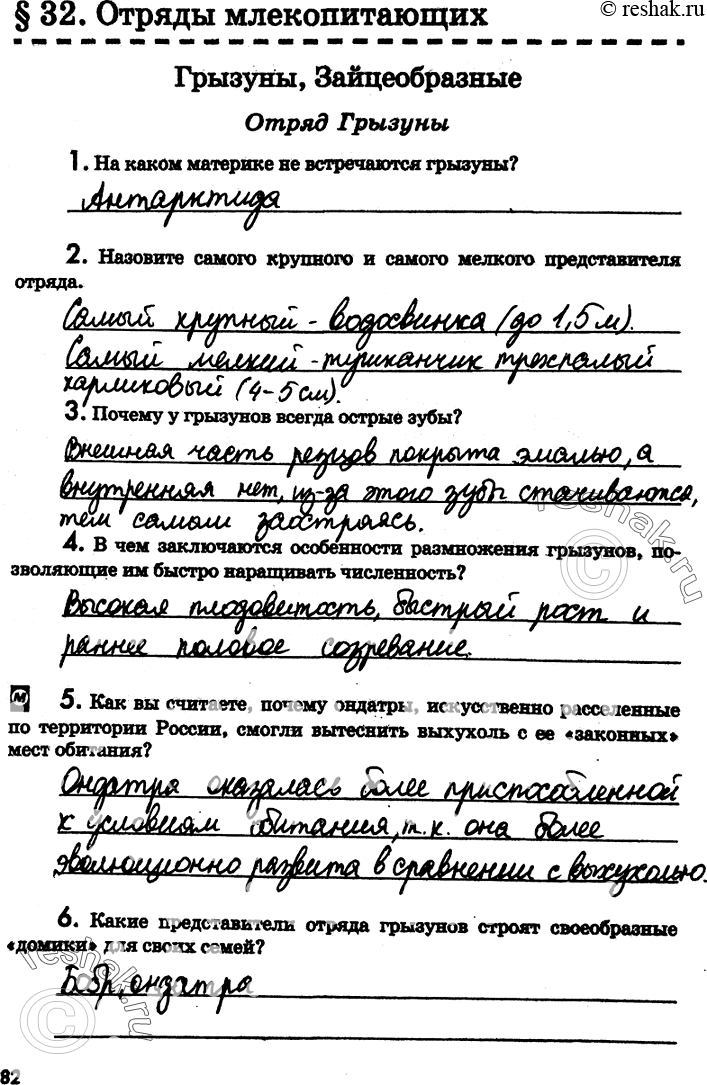 © reshak.ru
§ 32. Отряды млекопитающих
Грызуны, Зайцеобразные
Отряд Грызуны
1. На каком материке не встречаются грызуны?
Антарктида
2. Назовите самого крупного и самого мелкого представителя
отряда.
Самый крупный - водосвинка (до 1,5 м).
Самый мелкий - тушканчик трехпалый
карликовый (4-5 см).
3. Почему у грызунов всегда острые зубы?
Внешная часть резцов покрыта эмалью, а
внутренняя нет, из-за этого зубы стачиваются,
тем самым заостряясь.
4. В чем заключаются особенности размножения грызунов, по-
зволяющие им быстро наращивать численность?
Высокая плодовитость, быстрый рост и
раннее половое созревание.
М 5. Как вы считаете, почему ондатры, искусственно расселенные
по территории России, смогли вытеснить выхухоль с ее «законных»
мест обитания?
Ондатра оказалась более приспособленной
к условиям обитания, т.к. она более
эволюционно развита в сравнении с выхухолью.
6. Какие представители отряда грызунов строят своеобразные
«домики» для своих семей?
Бобр, ондатра
82
reshak.ru
reshak.ru